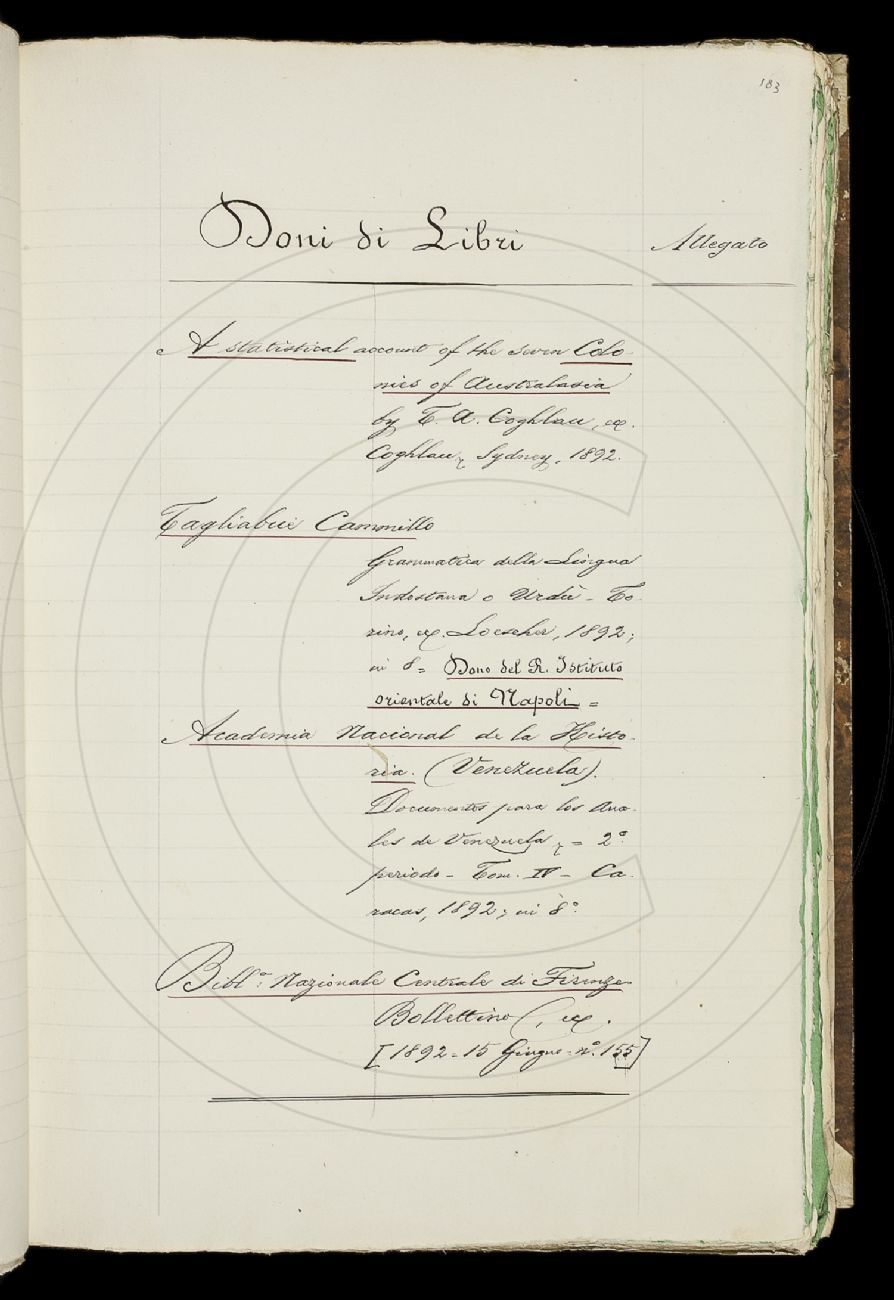 183
Doni di Libri
Allegato
A statistical account of the seven Colo-
nies of Australasia
by T. A. Coghlan, ex.
Coghlan, Sydney, 1892.
Tagliabue Cammillo
Grammatica della Lingua
Indostana o Urdù - To-
rino, ex. Loescher, 1892;
in 8° = Dono del R. Istituto
orientale di Napoli =
Academia Nacional de la Histo-
ria. (Venezuela).
Documentos para los Ana-
les de Venezuela, = 2°
periodo - Tom. IV - Ca-
racas, 1892; in 8°
Bibl.ª Nazionale Centrale di Firenze
Bollettino, ex.
[1892 - 15 Giugno - n.° 155]